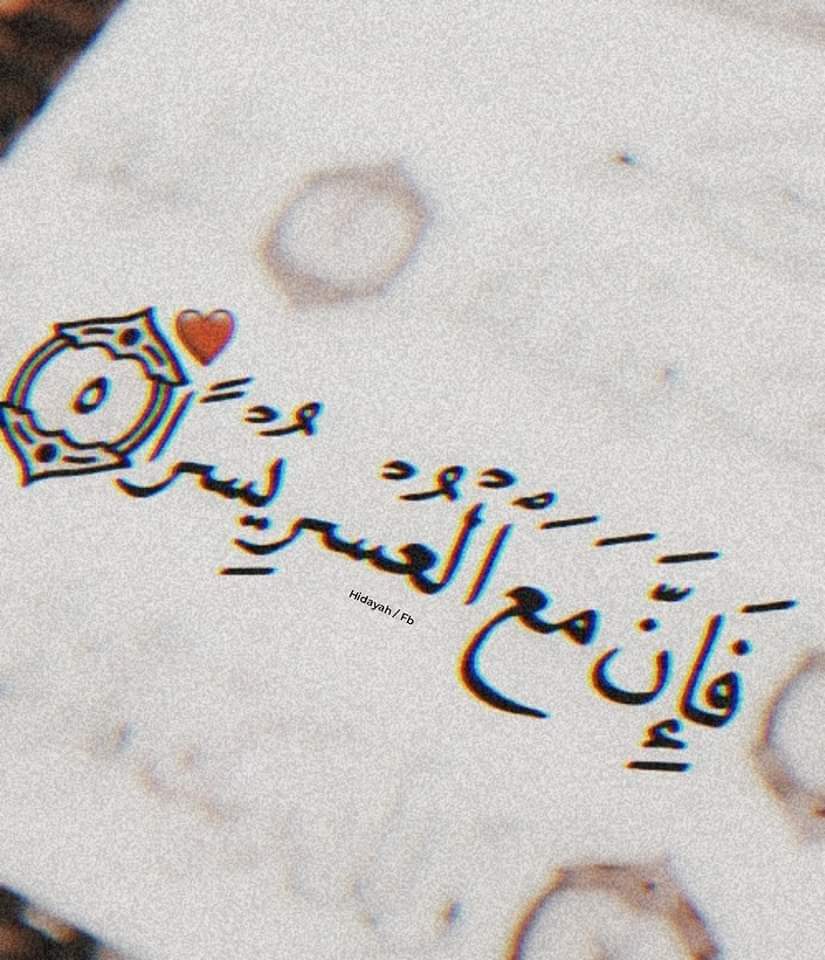 فَإِنَّ مَعَ ٱلْعُسْرِ يُسْرًا ٥ ❤️
Hidayah / Fb